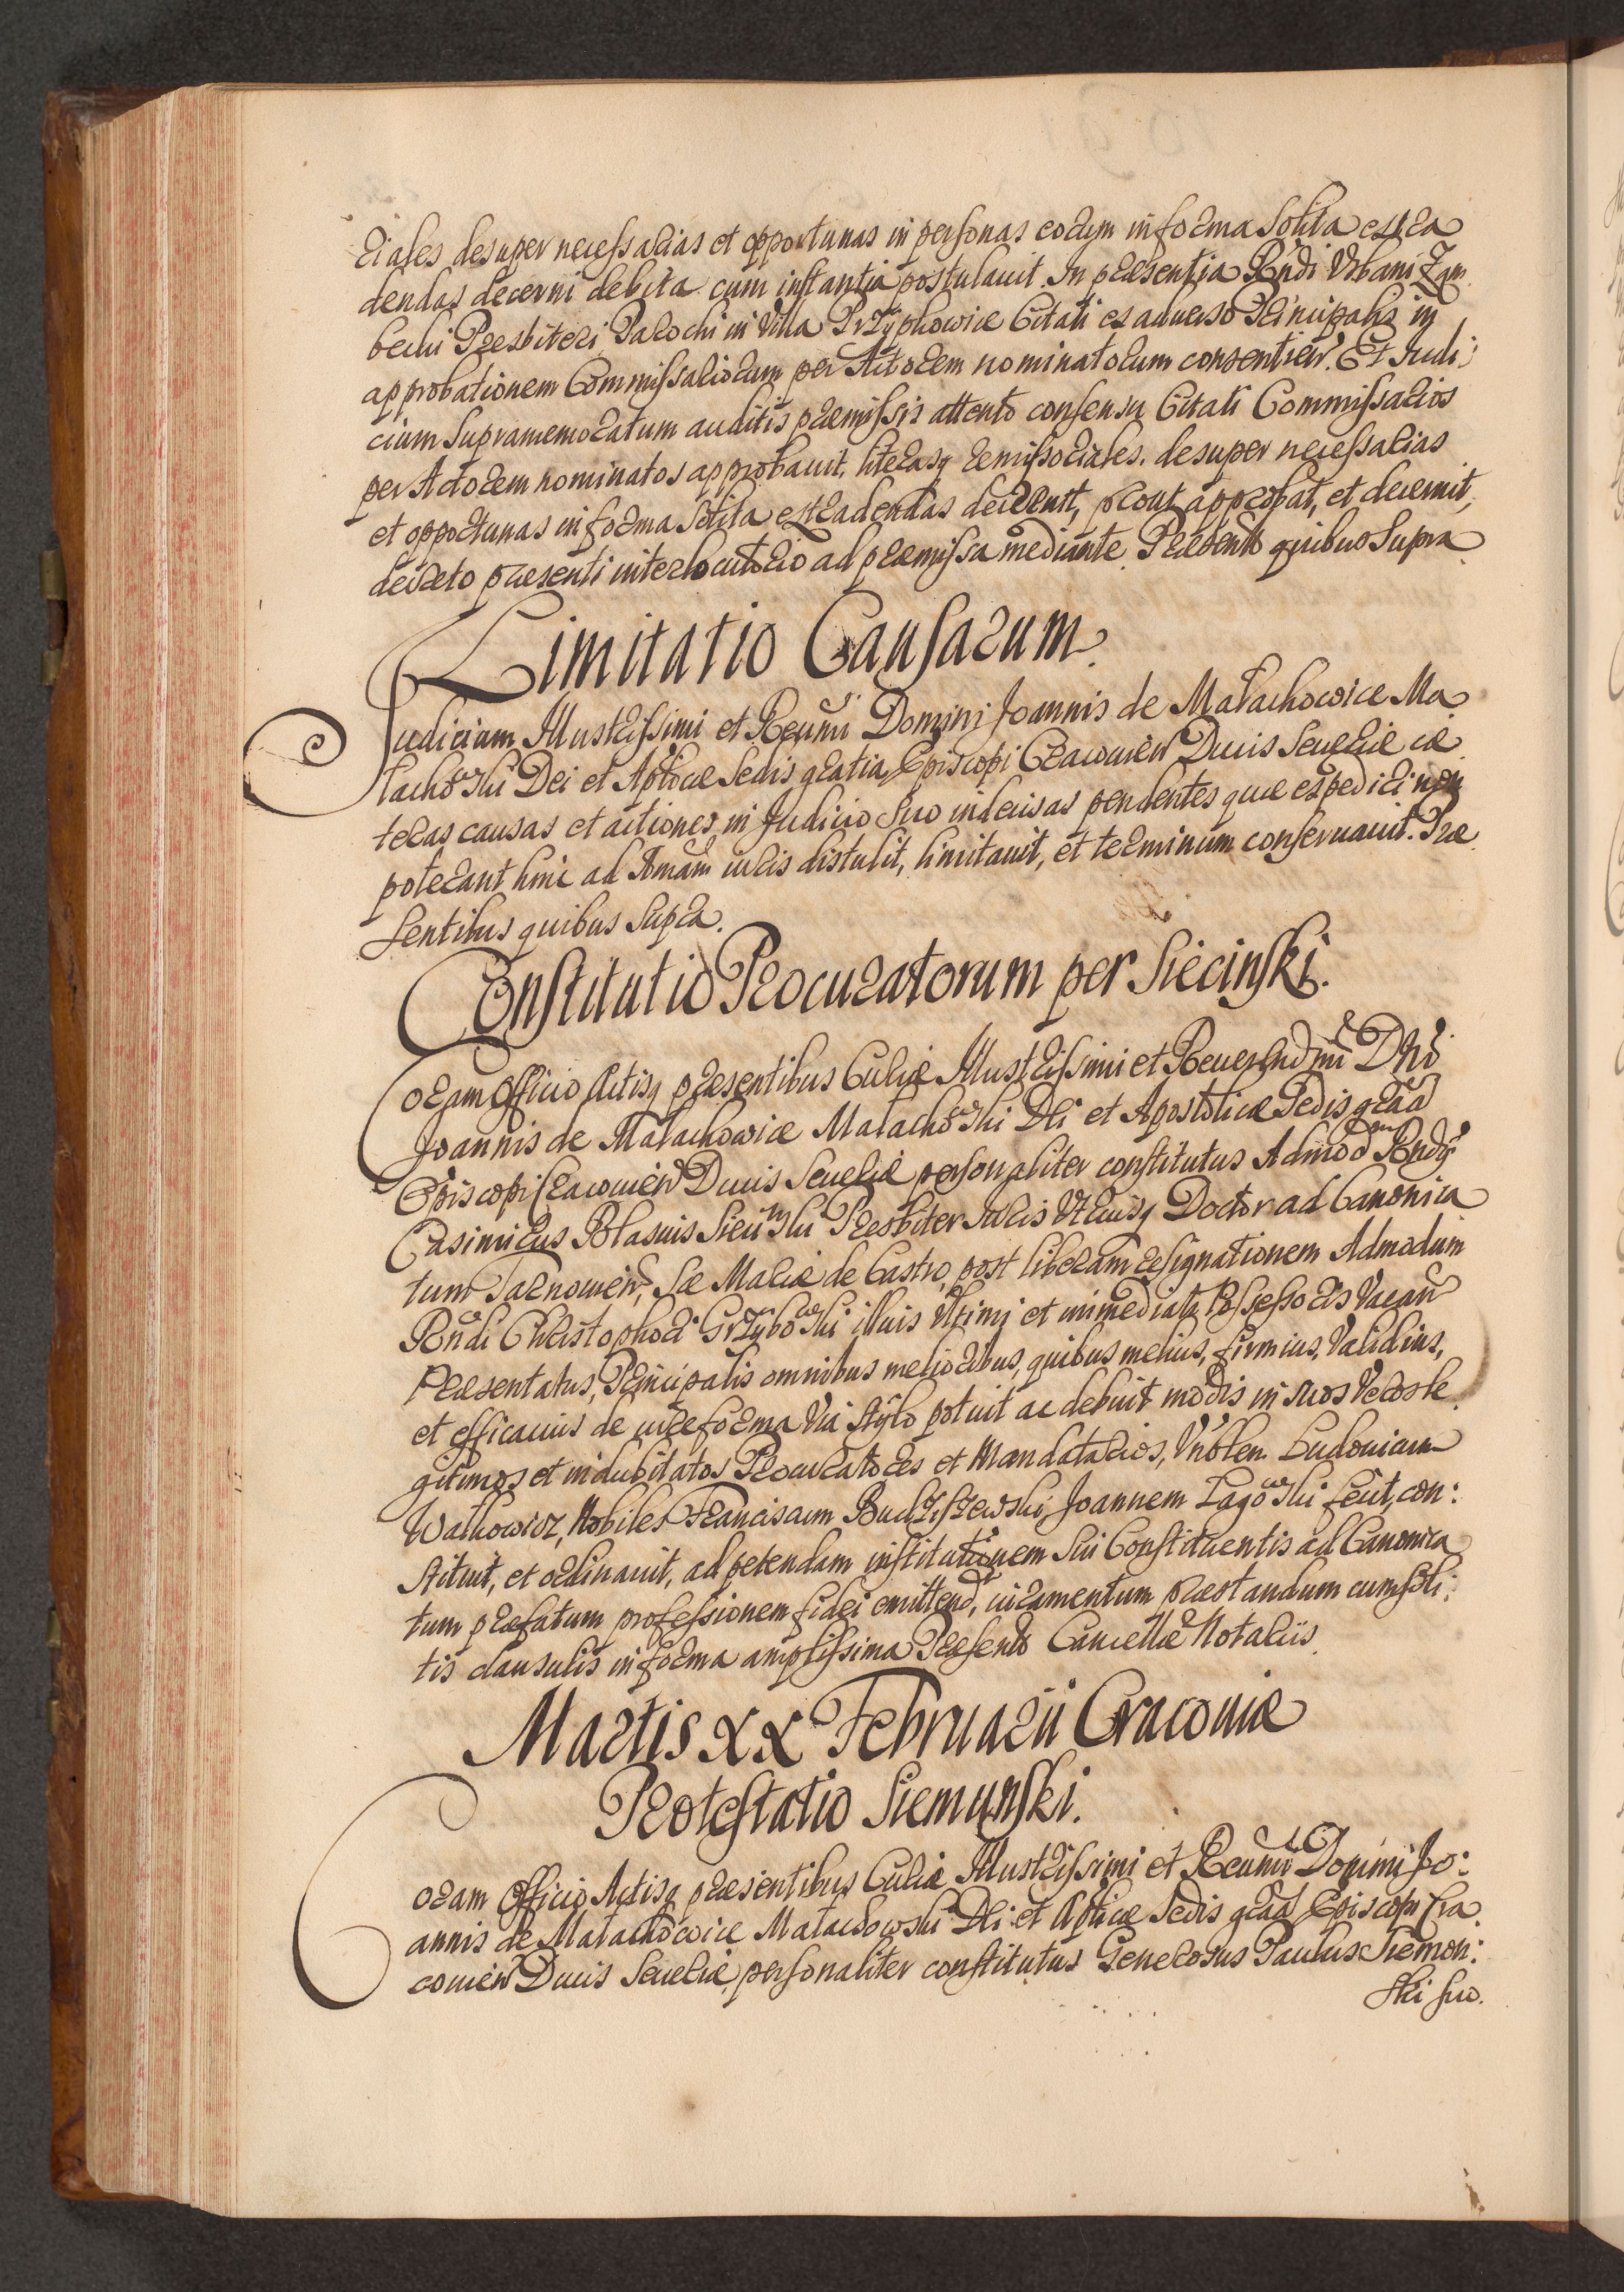 riales desuper necessarias et opportunas in personas eorum in forma solita extra
dendas decerni debita cum instantia postulavit. In praesentia Rndi Urbani Zam
becki Presbiteri Parochi in Villa Przypkowice Citati ex adverso Principalis in
approbationem Commissariorum per Actorem nominatorum consentien. Et Judi:
cium supramemoratum auditis praemissis attento consensu Citati Commissarios
per Actorem nominatos approbavit, literasq remissoriales desuper necessarias
et opportunas in forma solita extradendas decrevit, prout approbat, et decernit,
decreto praesenti interlocutorio ad praemissa mediante. Praesentb quibus supra
Limitatio Causarum.
Judicium Illustrissimi et Reumi Domini Joannis de Małachowice Ma
łachowski Dei et Aplicae Sedis gratia Episcopi Cracouien Ducis Seueriae cae
teras causas et actiones in Judicio suo indecisas pendentes quae expediri non
poterant hinc ad Amam iuris distulit, limitauit, et terminum conseruauit. Prae
sentibus quibus supra.
Constitutio Procuratorum per Siecinski.
Coram Officio Actisq praesentibus Curiae Illustrissimi et Reuerendmi Dni
Joannis de Małachowice Małachowski Dei et Apostolicae Sedis graa
Episcopi Cracouien Ducis Seueriae personaliter constitutus Admodum Rndus
Casimirus Blasius Siecinski Presbiter Iuris Utriusq Doctor ad Canonica
tum Tarnouien, Sae Mariae de Castro, post liberam resignationem Admodum
Rndi Christophori Grzybowski illius ultimi et immediati Possessoris Vacan
Praesentatus, Principalis omnibus melioribus, quibus melius, firmius, Validius,
et efficacius de iure forma Via stylo potuit ac debuit modis in suos Veros le
gitimos et indubitatos Procuratores et Mandatarios, Ludouicum
Walkowicz, Nobiles Franciscum Budziszewski, Joannem Łagowski fecit, con:
stituit, et ordinauit, ad petendam institutionem sui Constituentis ad Canonica
tum praefatum professionem fidei emittend, iuramentum praestandum cum soli:
tis clausulis in forma amplissima Praesentb Cancellae Notariis.
Martis XX Februarii Cracouiae
Protestatio Siemunski.
Coram Officio Actisq praesentibus Curiae Illustrissimi et Reumi Domini Jo:
annis de Małachowice Małachowski Dei et Aplicae Sedis graa Episcopi Cra
couien Ducis Seueriae personaliter constitutus Generosus Paulus Siemon:
ski suo.